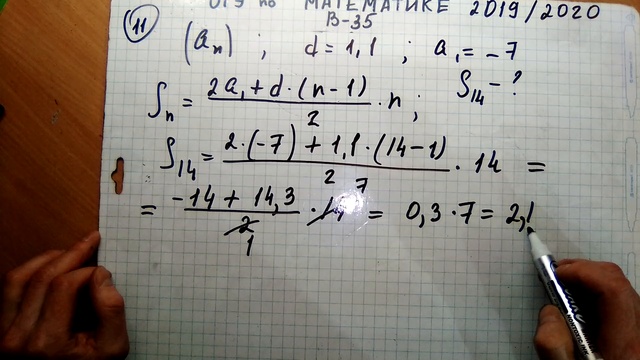 ОГЭ по МАТЕМАТИКЕ 2019/2020
В-35
11 (aₙ) ; d = 1,1 ; a₁ = -7
Sₙ = (2a₁ + d · (n-1))/2 · n ; S₁₄ - ?
S₁₄ = (2 · (-7) + 1,1 · (14-1))/2 · 14 =
= (-14 + 14,3)/2 · 14 = 0,3 · 7 = 2,1
7
1